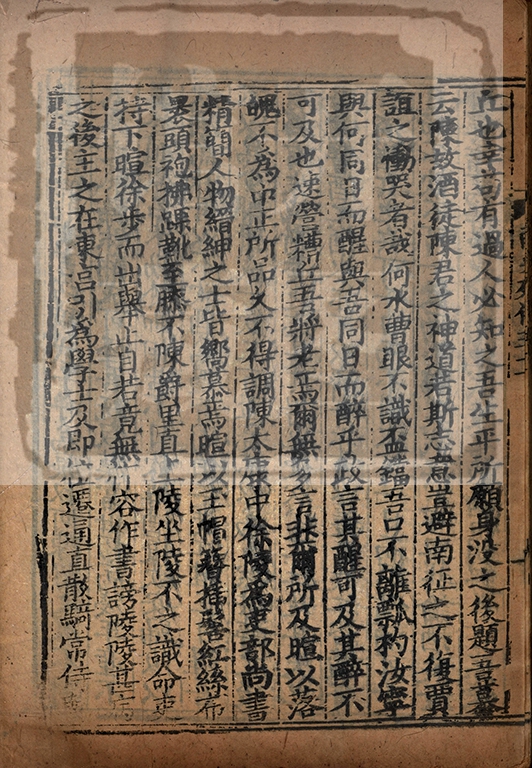 丘也幸苟有過人必知之吾生平所願身没之後題吾墓
云陳故酒徒陳君之神道若斯志意豈避南征之不復賈
誼之慟哭者哉何水曹眼不識盃鐺吾口不離瓢杓汝寧
與何同日而醒與吾同日而醉乎政言其醒可及其醉不
可及也速營糟丘吾將老焉爾無多言非爾所及暄以落
魄不為中正所品久不得調陳太康中徐陵為吏部尚書
精簡人物縉紳之士皆嚮慕焉暄以玉帽簪插髻紅絲布
裹頭袍拂踝靴至膝不陳爵里直上陵坐陵不之識命吏
持下暄徐步而出舉止自若竟無怍容作書謗陵陵甚病
之後主之在東宮引為學士及即位遷通直散騎常侍